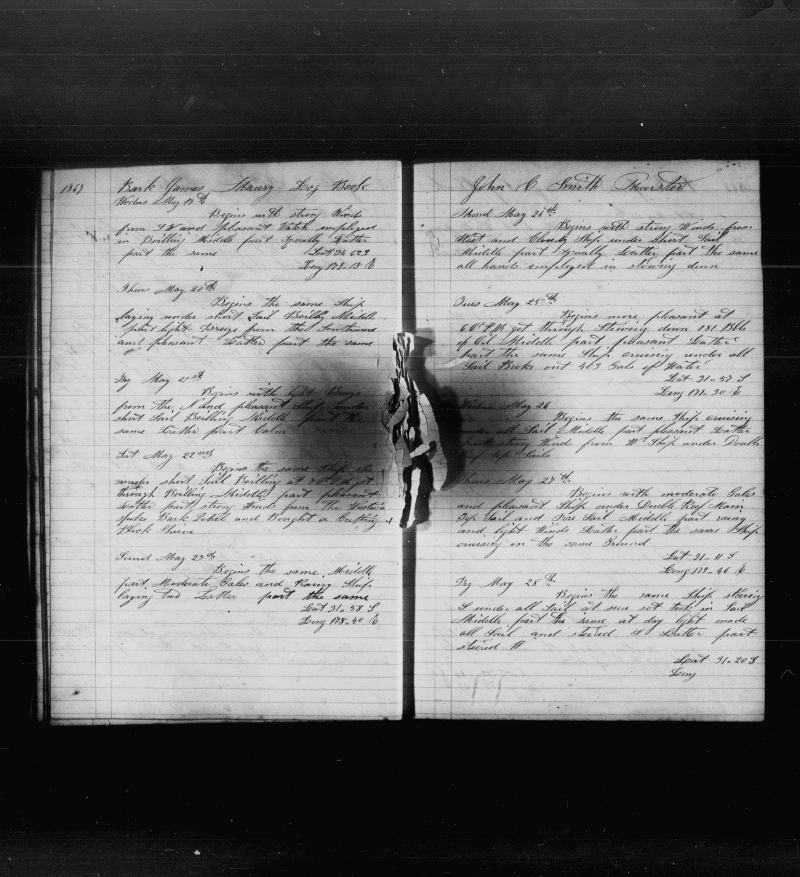 1869 Bark James Maury Log Book
Wednes May 19th
Begins with strong Winds
from SW and pleasant Watch employed
in Boiling Middle part Squally Latter
part the same Lat 32
Long 178..18 E
Thurs May 20th
Begins the same Ship
laying under short Sail Boiling Middle
part light Breeze from the Southward
and pleasant Latter part the same
Fry May 21st
Begins with light Breeze
from the N and pleasant Ship under
short Sail Boiling Middle part the
same Latter part Calm
Sat May 22nd
Begins the same Ship
under short Sail Boiling at got
through Boiling Middle part pleasant
Latter part strong Winds from the
spoke Bark and Bought a Cutting
Block
Sund May 23rd
Begins the same Middle
part Moderate Gales and Rainy Ship
laying Latter part the same
Lat 31..58 S
Long 178..40 E
John C Smith
Mond May 24th
Begins with strong Winds from
West and Cloudy Ship under Short Sail
Middle part Squally Latter part the same
all hands employed in stowing down
Tues May 25th
Begins more pleasant at
6 O'c PM got through Stowing down 181 Bbls
of Oil Middle part pleasant Latter
part the same Ship cruising under all
Sail Broke out 463 Gals of Water
Lat 31..57 S
Long 178..30 E
Wednes May 26
Begins the same Ship cruising
under all Sail Middle part pleasant Latter
part strong Wind from W Ship under Double
Reef Sails
Thurs May 27th
Begins with moderate Gales
and pleasant Ship under Double Reef Main
Top Sail and Fore Sail Middle part rainy
and light Winds Latter part the same Ship
cruising on the same Ground
Lat 31..11 S
Long 179..46 E
Fry May 28th
Begins the same Ship steering
S under all Sail at sun set took in Sail
Middle part the same at day light made
all Sail and steered S Latter part
steered W
Lat 31..20 S
Long